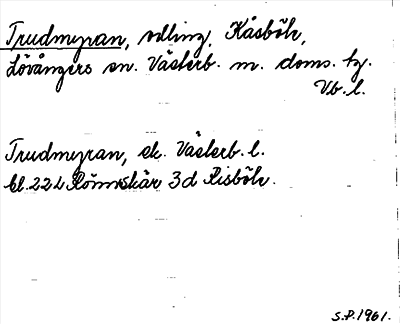 Trudmyran, odling, Kåsböle,
Lövångers sn. Västerb. m. doms. tg.
Vb. l.
Trudmyran, ek. Västerb. l.
bl. 22 L Rönnskär 3 d Risböle.
S.P. 1961.